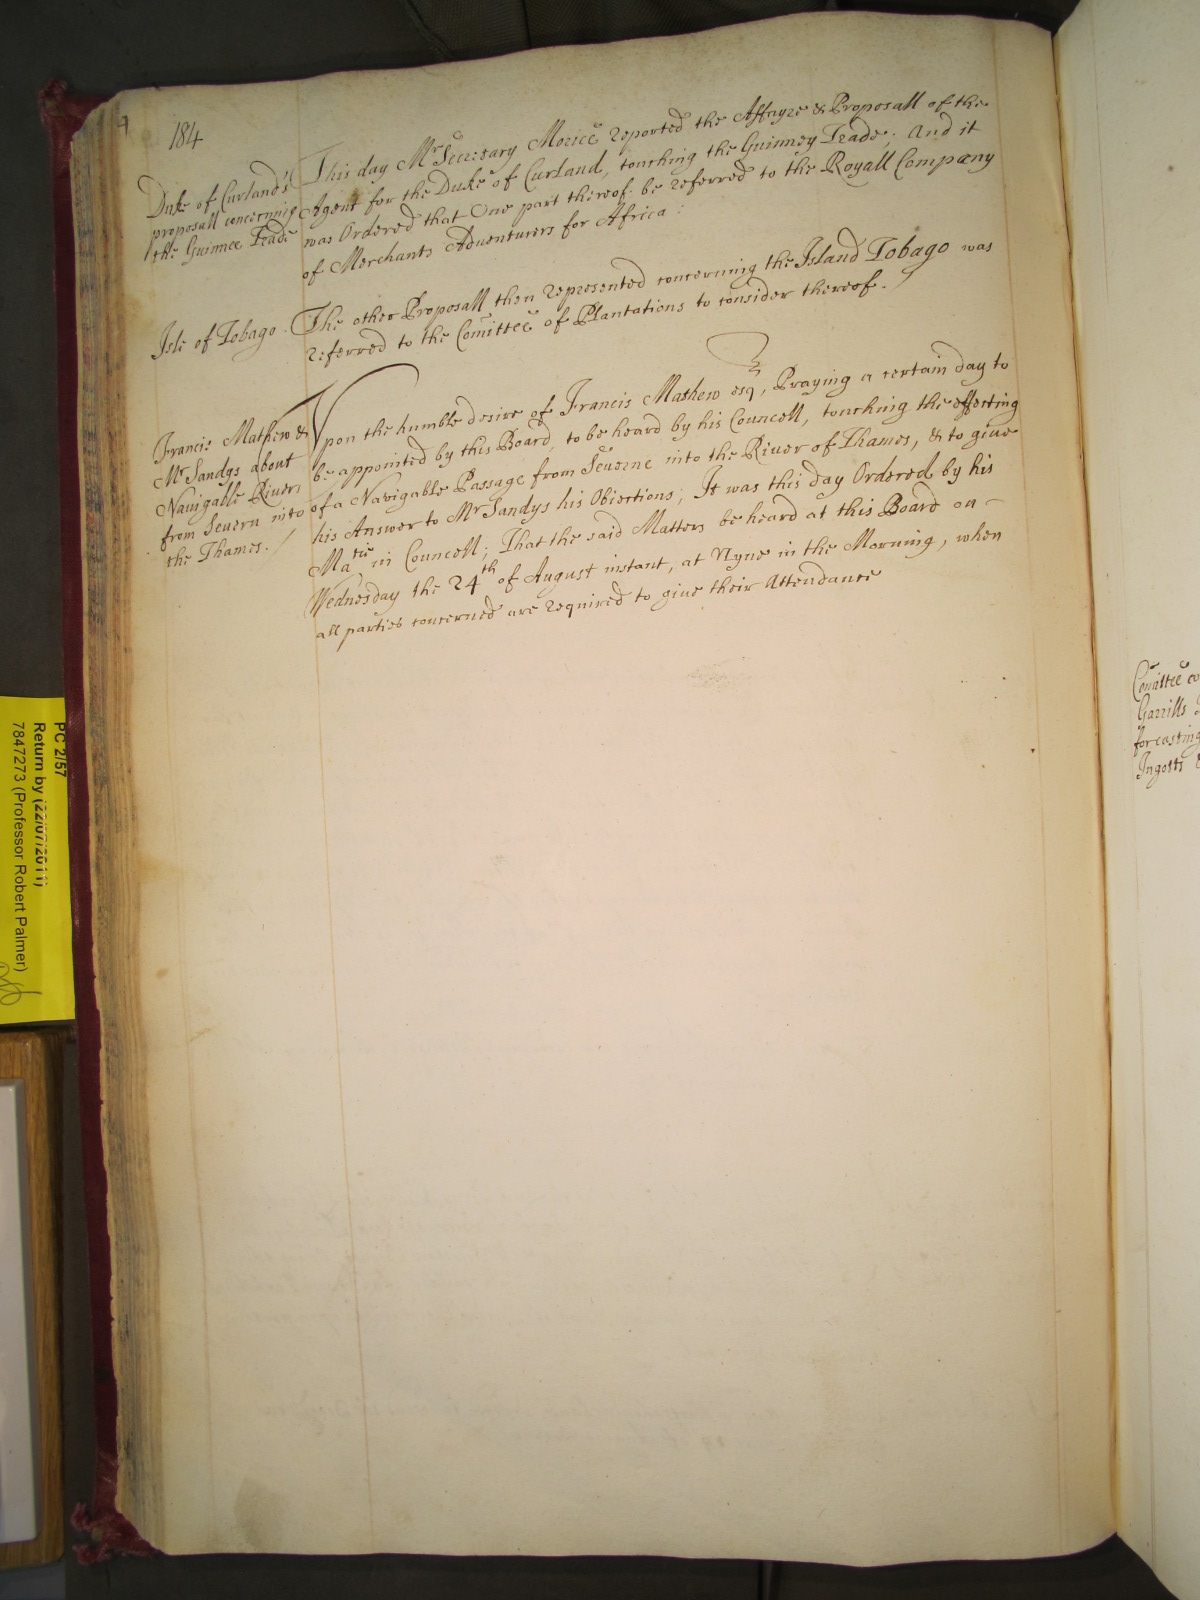 184
Duke of Curland's
proposall concerning
the Guinnee Trade
This day Mr Secretary Morice reported the Affayre & Proposall of the
Agent for the Duke of Curland, touching the Guinney Trade; And it
was Ordered that One part thereof be referred to the Royall Company
of Merchants Adventurers for Africa:
Isle of Tobago
The other Proposall then represented concerning the Island Tobago was
referred to the Comittee of Plantations to consider thereof.
Francis Mathew &
Mr Sandys about
Navigable River
from Severn into
the Thames.
Vpon the humble desire of Francis Mathew esq, Praying a certain day to
be appointed by this Board, to be heard by his Councell, touching the effecting
of a Navigable Passage from Severne into the River of Thames, & to give
his Answer to Mr Sandys his Obiections, It was this day Ordered by his
Matie in Councell; That the said Matters be heard at this Board on
Wednesday the 24th of August instant, at Nyne in the Morning, when
all parties concerned are required to give their Attendance
PC 2/57
Return by (22/07/2011)
7847273 (Professor Robert Palmer)
Comittee
Garrills
for casting
Ingotts